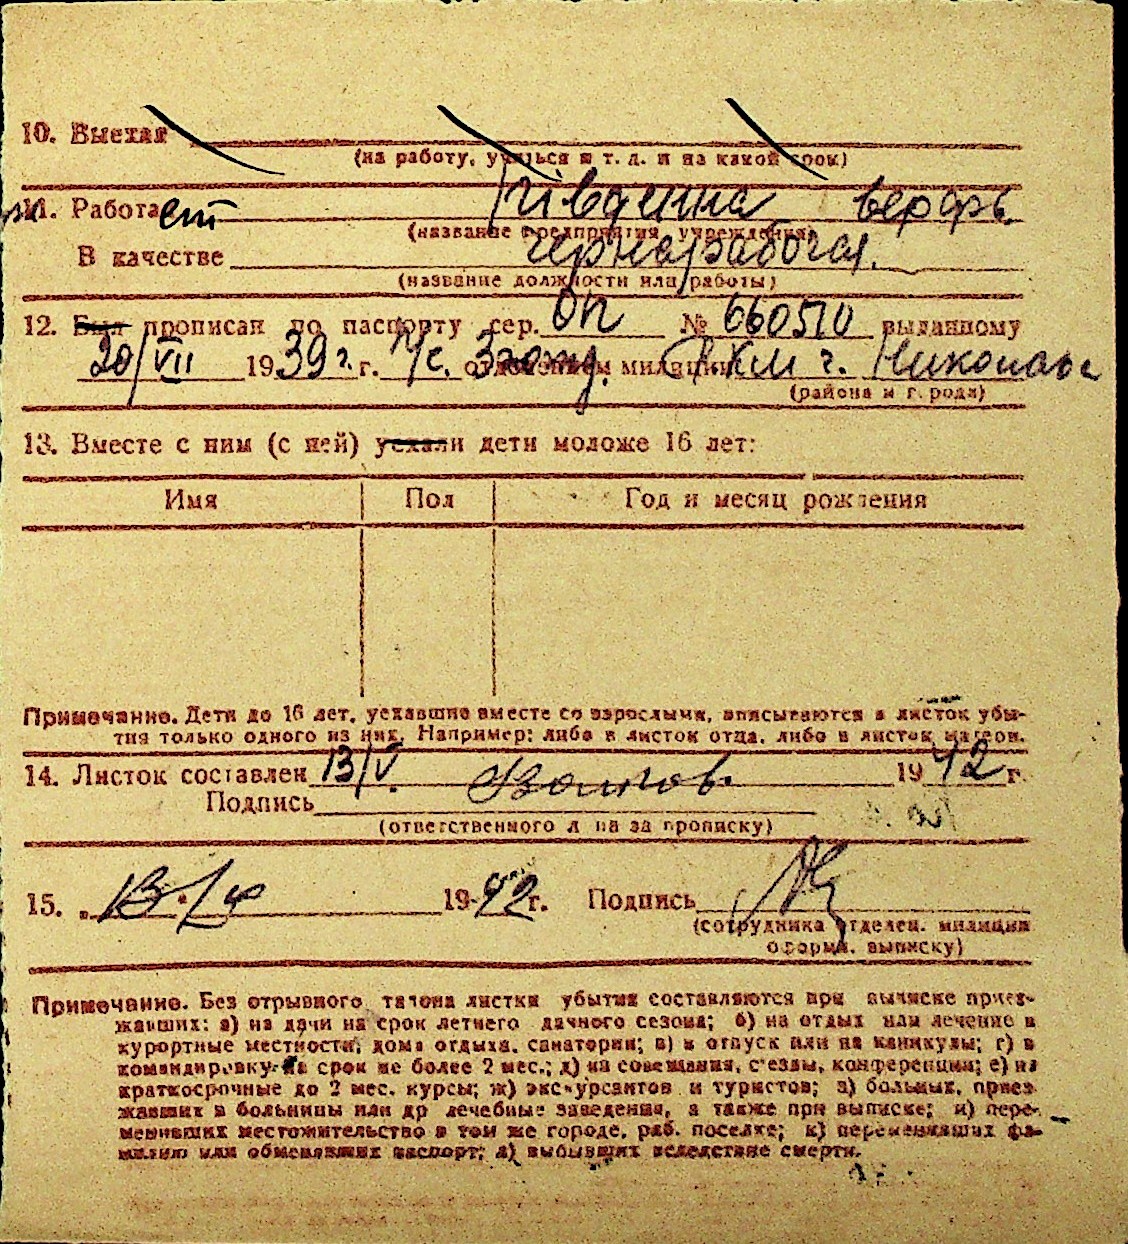 10. Выехал
(на работу, учиться и т. д. и на какой срок)
11. Работает Південна верфь.
(название предприятия, учреждения)
В качестве чернорабочая.
(название должности или работы)
12. Был прописан по паспорту сер. ОП № 660510 выданному
20/VII 1939 г. г. п/с. 3 годж. отделением милиции Р.К.М г. Николаев
(района и города)
13. Вместе с ним (с ней) уехали дети моложе 16 лет:
Имя Пол Год и месяц рождения
Примечание. Дети до 16 лет, уехавшие вместе со взрослыми, вписываются в листок убы-
тия только одного из них. Например: либо в листок отца, либо в листок матери.
14. Листок составлен 13/V. 1942 г.
Подпись
(ответственного лица за прописку)
15. „13" /V 1942 г. Подпись
(сотрудника отделен. милиции
оформ. выписку)
Примечание. Без отрывного талона листки убытия составляются при выписке приез-
жавших: а) на дачи на срок летнего дачного сезона; б) на отдых или лечение в
курортные местности, дома отдыха, санатории; в) в отпуск или на каникулы; г) в
командировку на срок не более 2 мес.; д) на совещания, съезды, конференции; е) на
краткосрочные до 2 мес. курсы; ж) экскурсантов и туристов; з) больных, приез-
жавших в больницы или др лечебные заведения, а также при выписке; и) пере-
менивших местожительство в том же городе, раб. поселке; к) переменивших фа-
милию или обменявших паспорт; л) выбывших вследствие смерти.